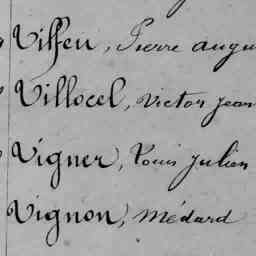 Vilfeu, Pierre augu
Villocel, Victor Jean
Vigner, Louis Julien
Vignon, Médard